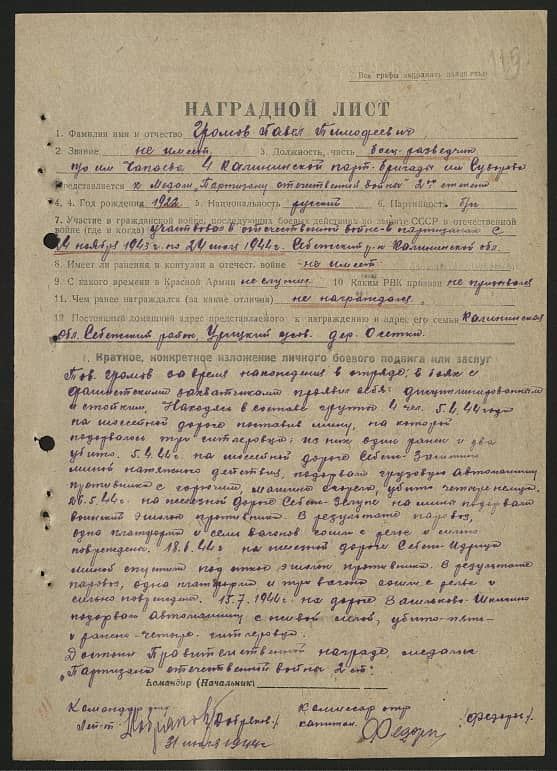 119
Все графы заполнять полностью
НАГРАДНОЙ ЛИСТ
1. Фамилия имя и отчество Громов Павел Тимофеевич
2. Звание не имеет 3. Должность, часть боец-разведчик
им Чапаева 4 Калининской парт-бригады
представляется к Медали „Партизану отечественной войны" 2ой степени
4. 4. Год рождения 1922 5. Национальность русский 6. Партийность б/п
7. Участие в гражданской войне, последующих боевых действиях по защите СССР и отечественной
войне (где и когда) участвовал в отечественной войне в партизанах с
24 ноября 1943 г. по 24 июля 1944 г. Себежский р-н Калининской обл.
8. Имеет ли ранения и контузии в отечест. войне не имеет
9. С какого времени в Красной Армии не служил 10 Каким РВК призван не призывался
11. Чем ранее награждался (за какие отличия) не награждался
12 Постоянный домашний адрес представляемого к награждению и адрес его семьи Калининская
обл. Себежский район, Урицкий дер. Осетки
1. Краткое, конкретное изложение личного боевого подвига или заслуг
Тов. Громов за время нахождения в отряде, в боях с
фашистскими захватчиками проявил себя: дисциплинированным
и стойким. Находясь в составе группы 4 чел. 5.4.44 года
на шоссейной дороге поставил мину, на которой
подорвалось три гитлеровца: из них один ранен и два
убито. 5.4.44 г. на шоссейной дороге Себеж-
миной натяжного действия, подорвал грузовую автомашину
противника с горючим, машина сгорела, убито четыре немца.
26.5.44 г. на железной дороге Себеж-Зилупе на мине подорвал
воинский эшелон противника. В результате паровоз,
одна платформа и семь вагонов сошли с рельс и сильно
повреждены. 18.6.44 г на железной дороге Себеж-Идрица
миной спустил под откос эшелон противника. В результате
паровоз, одна платформа и три вагона сошли с рельс и
сильно повреждены. 15.7.1944 г. на дороге
подорвал автомашину с живой силой, убито-пять-
и ранено-четыре. гитлеровца.
Достоин Правительственной награде, медали
„Партизана отечественной войны" 2 ст.
Командир (Начальник)
Командир Комиссар отр
капитан (Федоры)
31 июля 1944 г